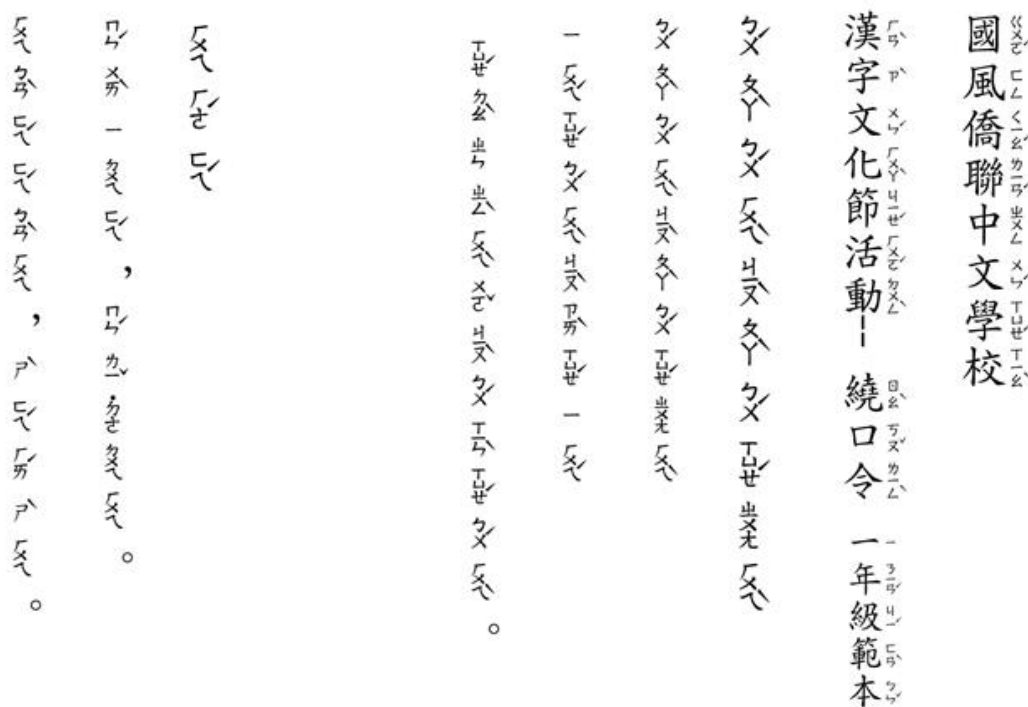 國ㄍㄨㄛˊ風ㄈㄥ僑ㄑㄧㄠˊ聯ㄌㄧㄢˊ中ㄓㄨㄥ文ㄨㄣˊ學ㄒㄩㄝˊ校ㄒㄧㄠˋ
漢ㄏㄢˋ字ㄗˋ文ㄨㄣˊ化ㄏㄨㄚˋ節ㄐㄧㄝˊ活ㄏㄨㄛˊ動ㄉㄨㄥˋ-- 繞ㄖㄠˋ口ㄎㄡˇ令ㄌㄧㄥˋ 一ㄧ年ㄋㄧㄢˊ級ㄐㄧˊ範ㄈㄢˋ本ㄅㄣˇ
ㄅㄨˊ ㄆㄚˋ ㄅㄨˊ ㄏㄨㄟˋ ㄐㄧㄡˋ ㄆㄚˋ ㄅㄨˊ ㄒㄩㄝˊ ㄓㄨㄤ ㄏㄨㄟˋ
ㄅㄨˊ ㄆㄚˋ ㄅㄨˊ ㄏㄨㄟˋ ㄐㄧㄡˋ ㄆㄚˋ ㄅㄨˊ ㄒㄩㄝˊ ㄓㄨㄤ ㄏㄨㄟˋ
ㄧ ㄏㄨㄟˋ ㄒㄩㄝˊ ㄅㄨˊ ㄏㄨㄟˋ ㄐㄧㄡˋ ㄗㄞˋ ㄒㄩㄝˊ ㄧ ㄏㄨㄟˋ
ㄒㄩㄝˊ ㄉㄠˋ ㄓㄣ ㄓㄥ ㄏㄨㄟˋ ㄨㄛˇ ㄐㄧㄡˋ ㄅㄨˊ ㄒㄧㄣˋ ㄒㄩㄝˊ ㄅㄨˊ ㄏㄨㄟˋ。
ㄏㄨㄟ ㄏㄜˊ ㄈㄟˊ
ㄇㄣˊ ㄨㄞˋ ㄧ ㄉㄨㄟ ㄈㄟˊ，ㄇㄣˊ ㄌㄧˇ ˙ㄉㄜ ㄉㄨㄟ ㄏㄨㄟ。
ㄏㄨㄟ ㄅㄢˋ ㄈㄟˊ ㄈㄟˊ ㄅㄢˋ ㄏㄨㄟ，ㄕˋ ㄈㄟˊ ㄏㄞˊ ㄕˋ ㄏㄨㄟ。